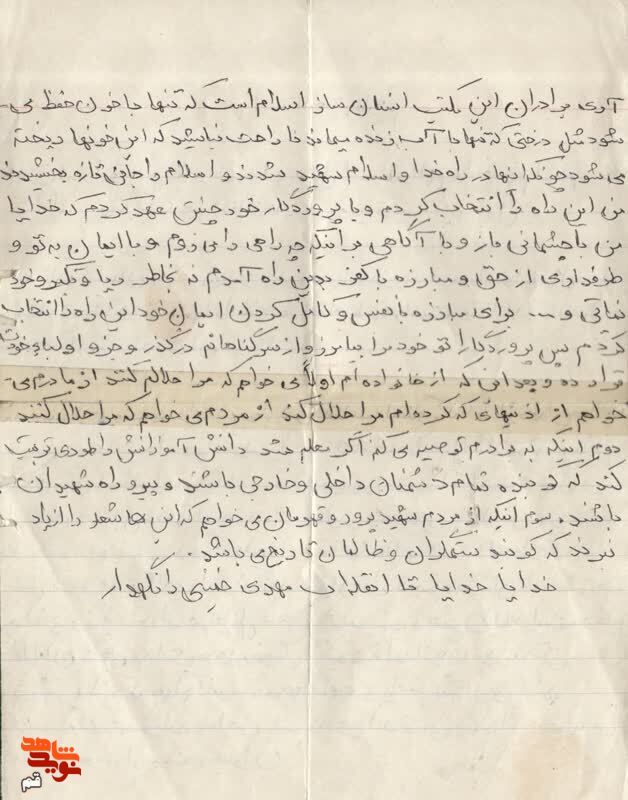 آری برادران این مکتب انسان ساز اسلام است که تنها با خون حفظ می-
شود مثل درختی که تنها با آب زنده میماند ناراحت نباشید که این خونها ریخته
می شود چونکه اینها در راه خدا و اسلام شهید شدند و اسلام را جانی تازه بخشیدند
من این راه را انتخاب کردم و با پروردگار خود چنین عهد کردم که خدایا
من با چشمانی باز و با آگاهی بر اینکه چه راهی را می روم و با ایمان به تو و
طرفداری از حق و مبارزه با کفر بدین راه آمدم نه بخاطر ریا و تکبر و خود
نمائی و ... برای مبارزه با نفس و کامل کردن ایمان خود این راه را انتخاب
کردم پس پروردگارا تو خود مرا بیامرز و از سر گناهانم درگذر و جزو اولیاء خودت
قرار ده و بعد این که از خانواده ام اولاً می خواهم که مرا حلالم کنند از مادرم می-
خواهم از اذیتهائی که کرده ام مرا حلال کند از مردم می خواهم که مرا حلال کنند
دوم اینکه به برادرم توصیه می که اگر معلم شد دانش آموزانش را طوری تربیت
کند که کوبنده تمام دشمنان داخلی و خارجی باشند و پیرو راه شهیدان
باشند، سوم اینکه از مردم شهید پرور و قهرمان می خواهم که این ها شعار را از یاد
نبرند که کوبنده ستمگران و ظالمان تاریخ می باشد.
خدایا خدایا تا انقلاب مهدی خمینی را نگهدار
نوید شاهد
قم